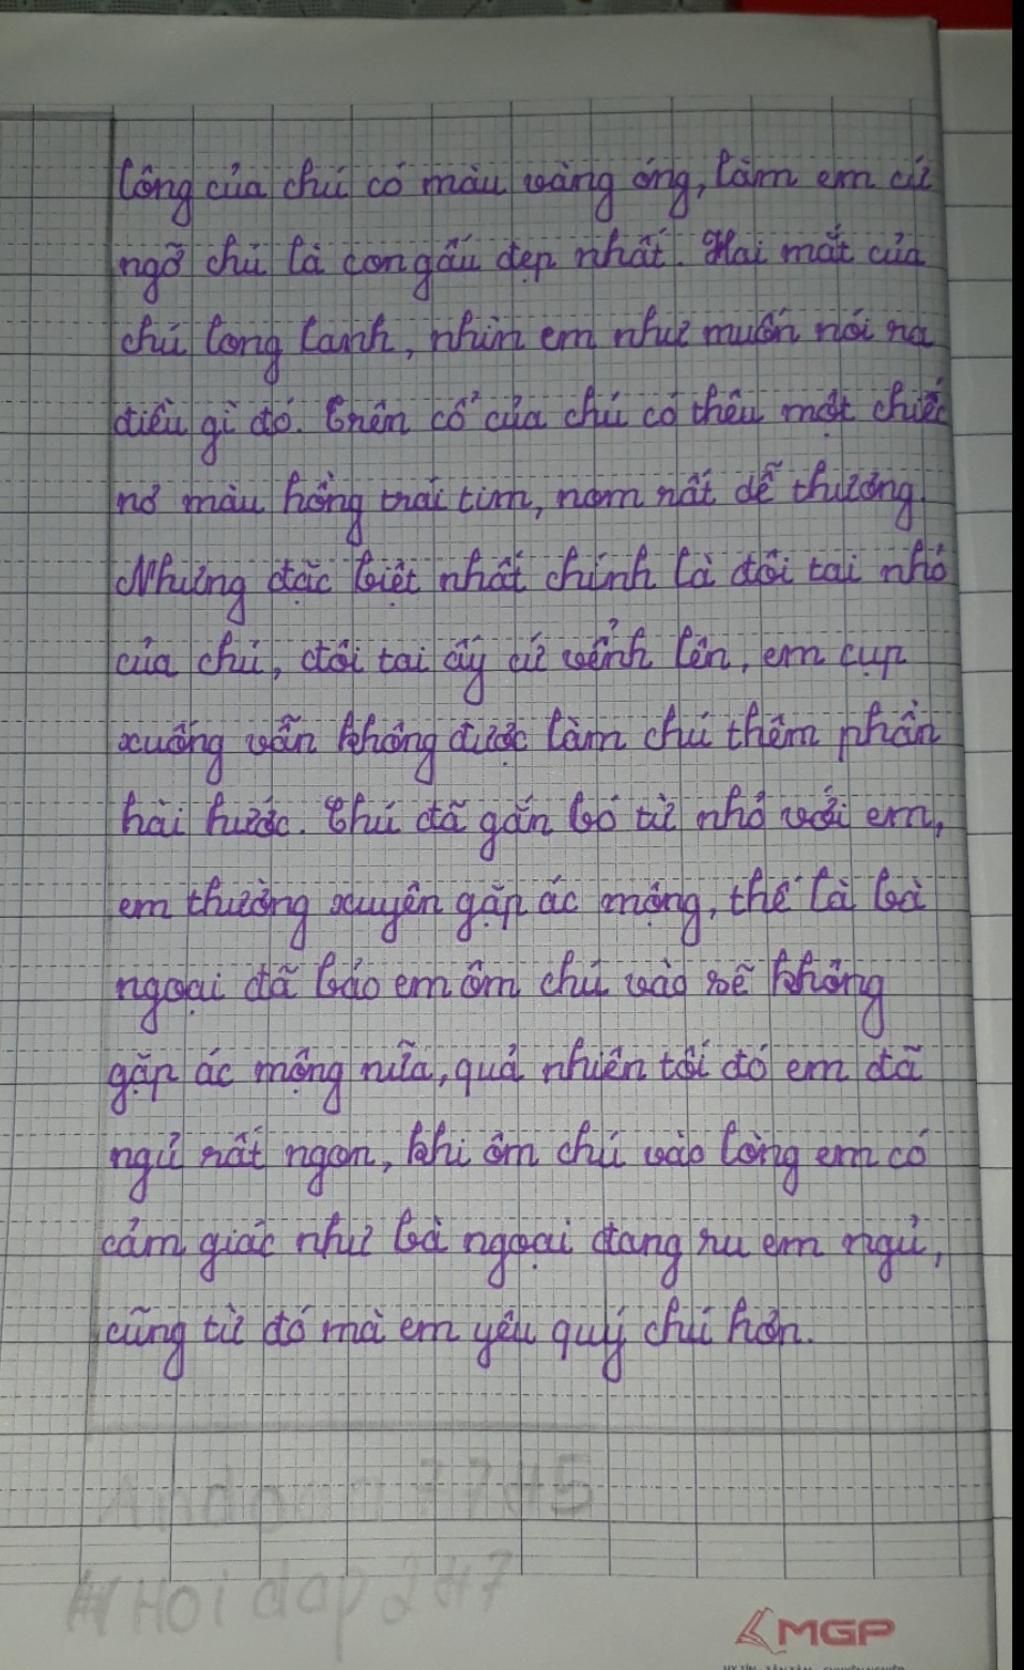 lông của chú có màu vàng óng, làm em cứ
ngỡ chú là con gấu đẹp nhất. Hai mắt của
chú long lanh, nhìn em như muốn nói ra
điều gì đó. Trên cổ của chú có thêu một chiếc
nơ màu hồng trái tim, nom rất dễ thương.
Nhưng đặc biệt nhất chính là đôi tai nhỏ
của chú, đôi tai ấy cứ vểnh lên, em cụp
xuống vẫn không được làm chú thêm phần
hài hước. Chú đã gắn bó từ nhỏ với em,
em thường xuyên gặp ác mộng, thế là bà
ngoại đã bảo em ôm chú vào sẽ không
gặp ác mộng nữa, quả nhiên tối đó em đã
ngủ rất ngon, khi ôm chú vào lòng em có
cảm giác như bà ngoại đang ru em ngủ,
cũng từ đó mà em yêu quý chú hơn.
#Hoidap247
MGP